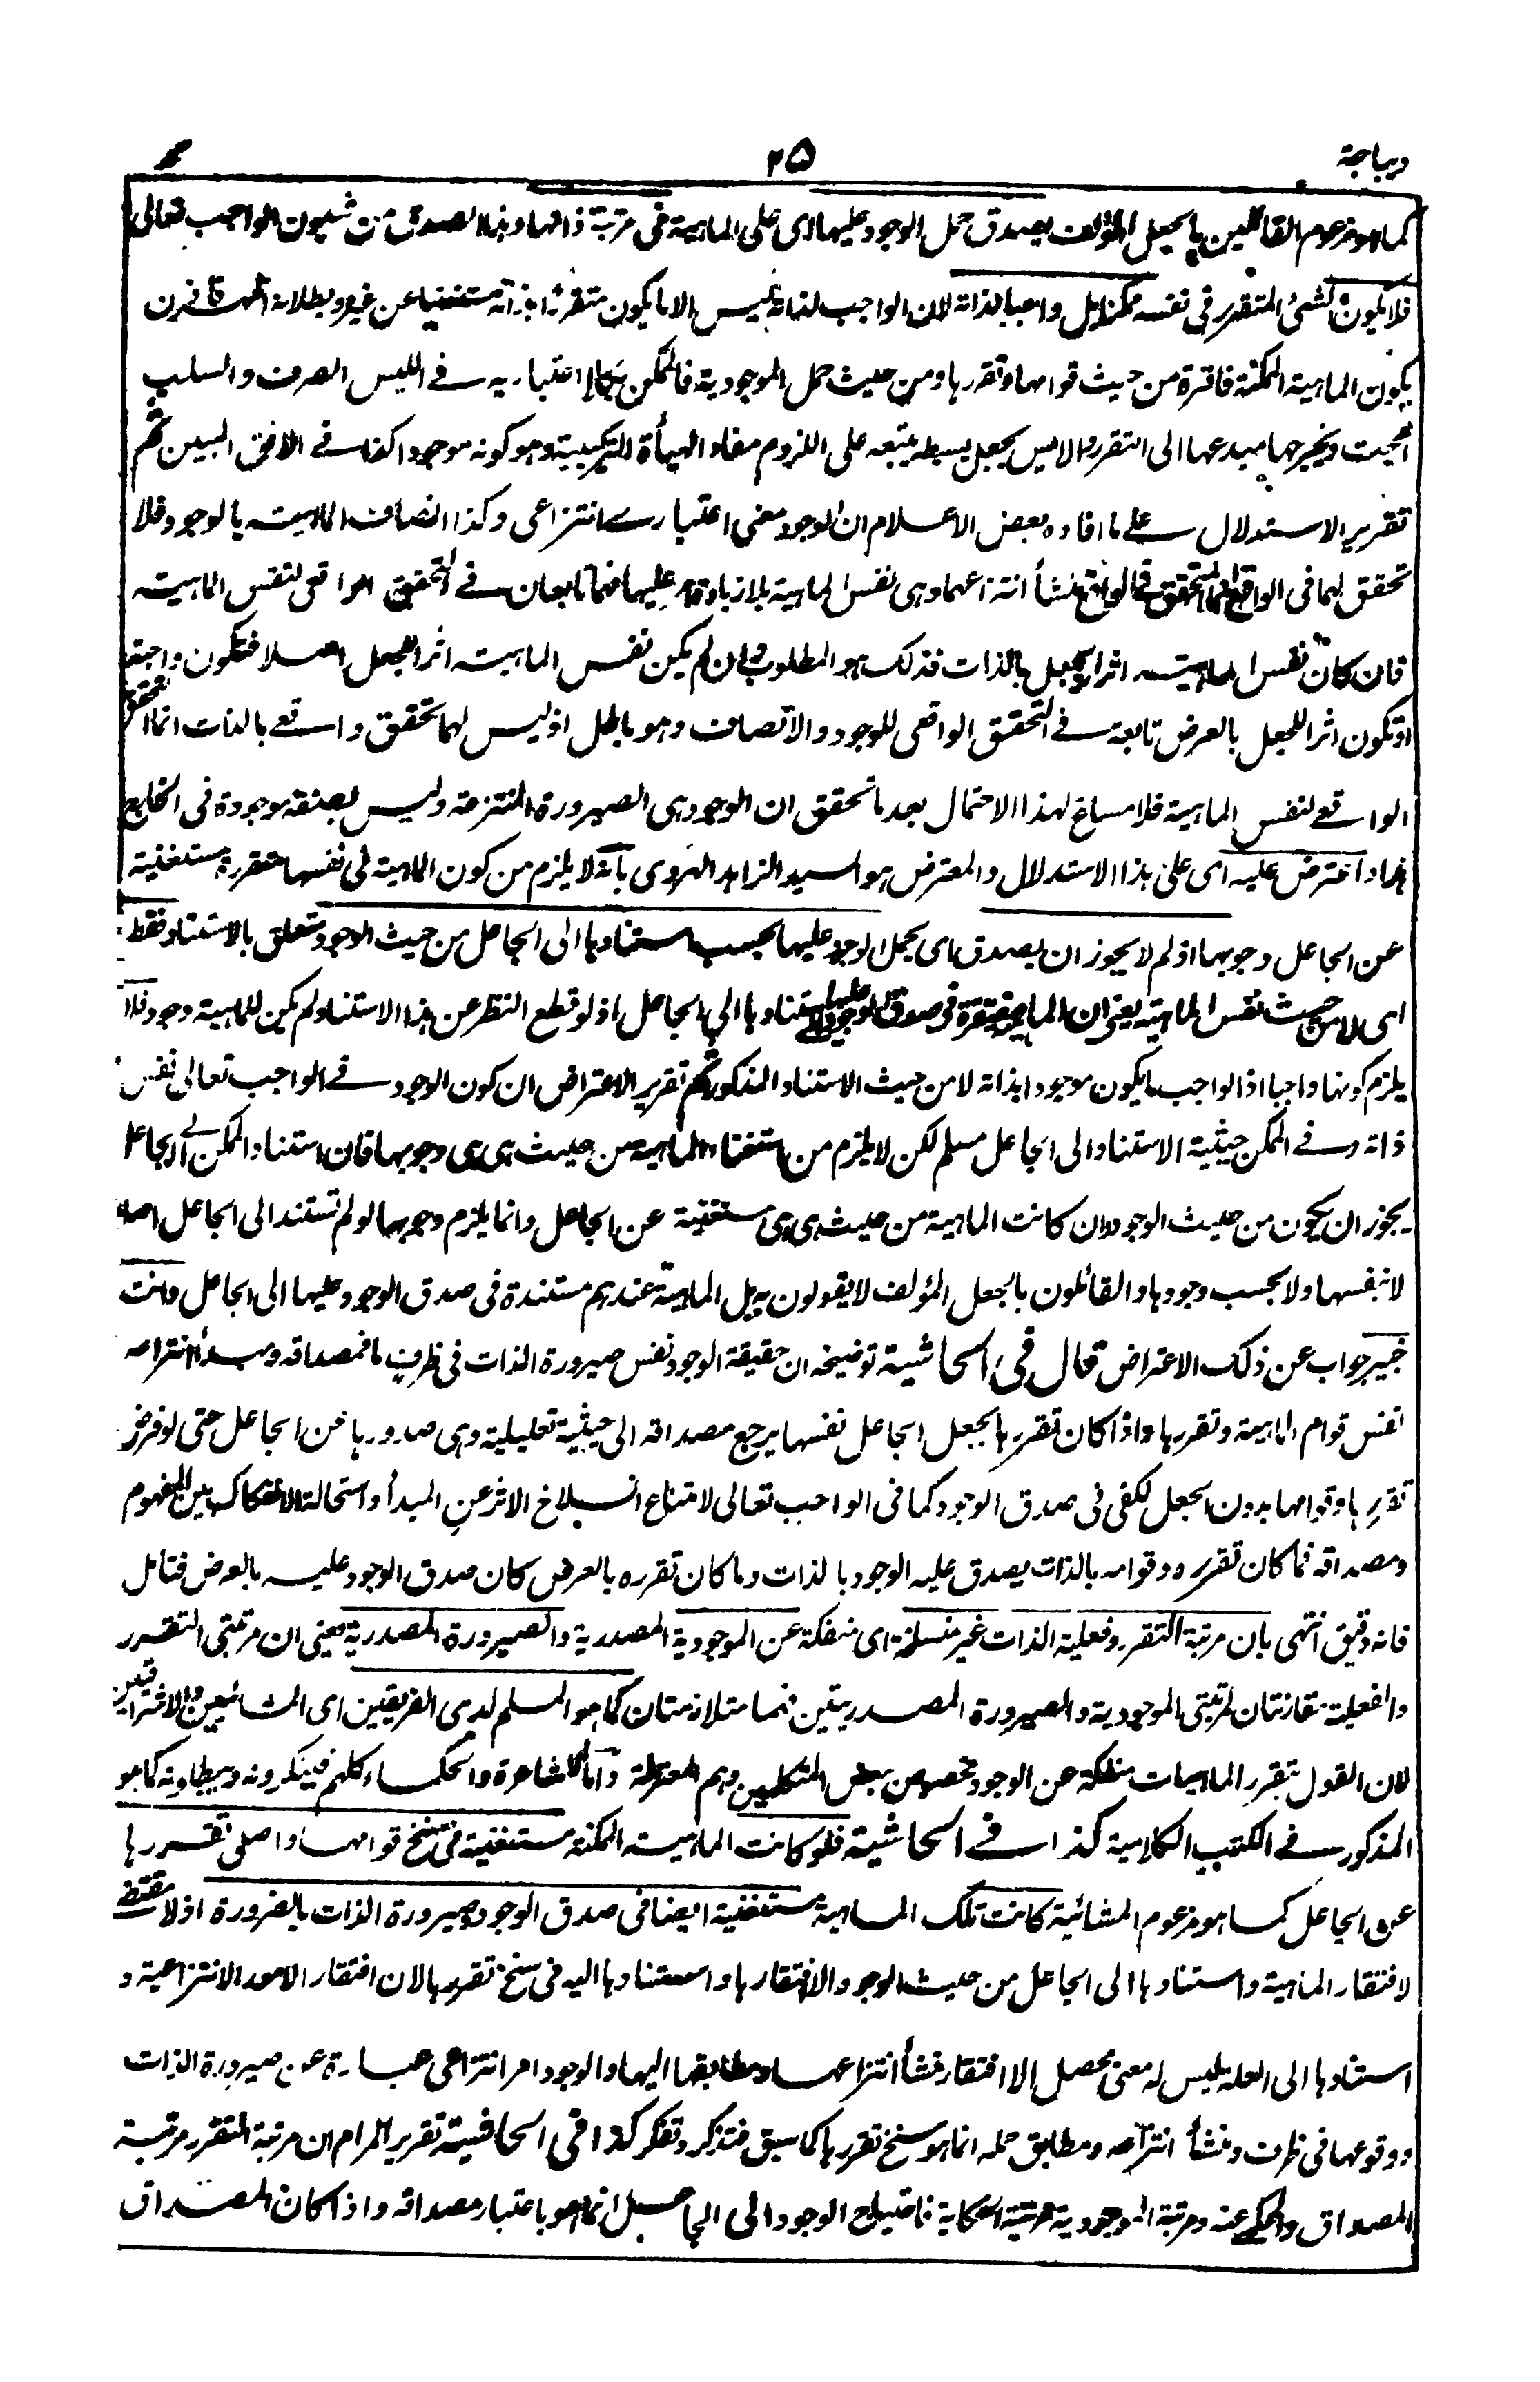 ديباجة
٢٥
كما هو مزعوم القائلين بالجعل المؤلف يصدق حمل الوجود عليها اى على الماهية فى مرتبة ذاتها وهذا الصدق من شيون الواجب تعالى
فلا يكون الشئ المتقرر فى نفسه ممكنا بل واجبا لذاته لان الواجب لذاته ليس الا ما يكون متقررا بذاته مستغنيا عن غيره وبطلانه فاذن
يكون الماهية الممكنة فاقرة من حيث قوامها وتقررها ومن حيث حمل الموجودية فالممكن اعتباريه فے الليس الصرف والسلب
البحت ويخرجها مبدعها الى التقرر والايس بجعل بسيط يتبعه على اللزوم مفاد الهيأة التركيبية وهو كونه موجودا كذا فے الافق المبين ثم
تقرير الاستدلال على ما افاده بعض الاعلام ان الوجود معنى اعتبارے انتزاعى وكذا اتصاف الماهيت بالوجود فلا
تحقق لهما فى الواقع انما المتحقق فى الواقع منشأ انتزاعهما وهى نفس الماهية بلا زيادة عليها فهما تابعان فے التحقق الواقعى لنفس الماهيت
فان كان نفس الماهيت اثرا للجعل بالذات فذلك هو المطلوب وان لم يكن نفس الماهيت اثرا للجعل اصلا فتكون واجبة
او تكون اثرا للجعل بالعرض تابعة فے التحقق الواقعى للوجود والاتصاف وهو باطل اذ ليس لهما تحقق واقعے بالذات انما التحقق
الواقعے لنفس الماهية فلا مساغ لهذا الاحتمال بعد ما تحقق ان الوجود هى الصيرورة المنتزعة وليس بصفة موجودة فى الخارج
هذا واعترض عليه اى على هذا الاستدلال والمعترض هو السيد الزاهد الهروى بانه لا يلزم من كون الماهية فى نفسها متقررة مستغنية
عن الجاعل وجوبها اذ لم لا يجوز ان يصدق اى يحمل الوجود عليها بحسب استنادها الى الجاعل من حيث الوجود متعلق بالاستناد فقط
اى لا من حيث نفس الماهية يعنى ان الماهية مفتقرة فى صدق الوجود عليها استنادها الى الجاعل اذ لو قطع النظر عن هذا الاستناد لم يكن للماهية وجود فلا
يلزم كونها واجبا اذ الواجب ما يكون موجودا بذاته لا من حيث الاستناد المذكور ثم تقرير الاعتراض ان كون الوجود فے الواجب تعالى نفس
ذاته وفے الممكن حيثية الاستناد الى الجاعل مسلم لكن لا يلزم من استغناء الماهية من حيث هى هى وجوبها فان استناد الممكن الى الجاعل
يجوز ان يكون من حيث الوجود وان كانت الماهية من حيث هى هى مستغنية عن الجاعل وانما يلزم وجوبها لو لم تستند الى الجاعل اصلا
لا بنفسها ولا بحسب وجودها والقائلون بالجعل المؤلف لا يقولون به بل الماهية عندهم مستندة فى صدق الوجود عليها الى الجاعل وانت
خبير جواب عن ذلك الاعتراض قال فى الحاشية توضيحه ان حقيقة الوجود نفس صيرورة الذات فى ظرف ما فمصداقه ومبدأ انتزاعه
نفس قوام الماهية وتقررها واذا كان تقررها بجعل الجاعل نفسها يرجع مصداقه الى حيثية تعليلية وهى صدورها عن الجاعل حتى لو فرض
تقررها وقوامها بدون الجعل لكفى فى صدق الوجود كما فى الواجب تعالى لامتناع انسلاخ الاثر عن المبدأ واستحالة الانفكاك بين المفهوم
ومصداقه فما كان تقرره وقوامه بالذات يصدق عليه الوجود بالذات وما كان تقرره بالعرض كان صدق الوجود عليه بالعرض فتامل
فانه دقيق انتهى بان مرتبة التقرر وفعلية الذات غير منسلخة اى منفكة عن الموجودية المصدرية والصيرورة المصدرية يعنى ان مرتبتى التقرر
والفعلية متقارنتان لمرتبتى الموجودية والصيرورة المصدريتين فهما متلازمتان كما هو المسلم لدى الفريقين اى المشائيين والاشراقيين
لان القول بتقرر الماهيات منفكة عن الوجود مخصوص ببعض المتكلمين وهم المعتزلة واما الاشاعرة والحكماء كلهم فينكرونه ويبطلونه كما هو
المذكور فے الكتب الكلامية كذا فے الحاشية فلو كانت الماهيت الممكنة مستغنية فى سنخ قوامها واصلى تقررها
عن الجاعل كما هو مزعوم المشائية كانت تلك الماهية مستغنية ايضا فى صدق الوجود وصيرورة الذات بالضرورة اذ لا مقتضے
لافتقار الماهية واستنادها الى الجاعل من حيث الوجود الا افتقارها واستنادها اليه فى سنخ تقررها لان افتقار الامور الانتزاعية و
استنادها الى العلة ليس له معنى محصل الا افتقار منشأ انتزاعها ومطابقها اليها والوجود امر انتزاعى عبارة عن صيرورة الذات
ووقوعها فى ظرف ومنشأ انتزاعه ومطابق حمله انما هو سنخ تقررها كما سبق فتذكر وتفكر كذا فى الحاشية تقرير المرام ان مرتبة التقرر مرتبة
المصداق والمحكے عنه ومرتبة الموجودية مرتبة الحكاية فاحتياج الوجود الى الجاعل انما هو باعتبار مصداقه واذا كان المصداق